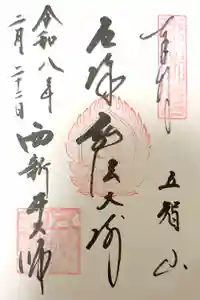 奉拝
五智山
厄除弘法大師
西新井大師
令和八年
二月二十二日